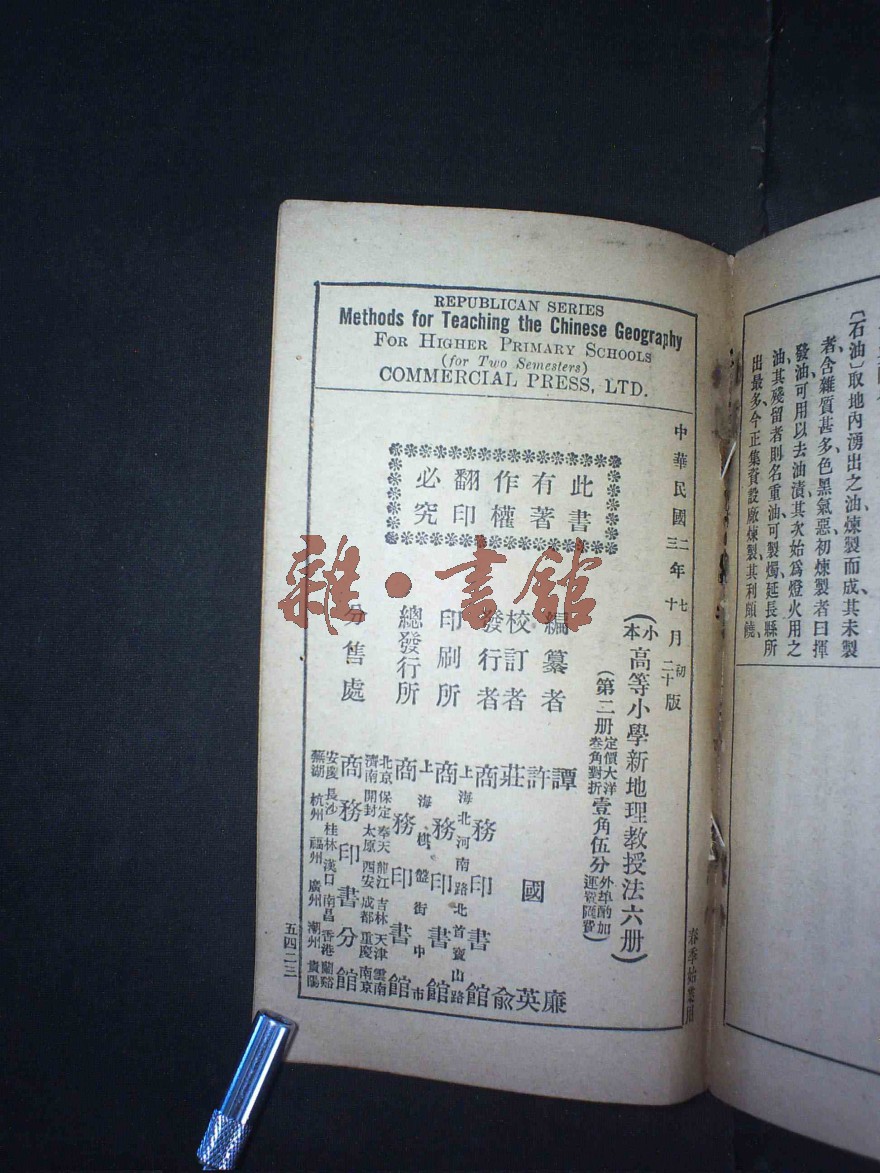 REPUBLICAN SERIES
Methods for Teaching the Chinese Geography
FOR HIGHER PRIMARY SCHOOLS
(for Two Semesters)
COMMERCIAL PRESS, LTD.
此書
有著
作權
翻印
必究
中華民國二年七月初版
三年十月二十版
(小本高等小學新地理教授法六册)
(第二册定價大洋叁角對折壹角伍分外埠酌加運費匯費)
編纂者 譚廉
校訂者 許國英 莊俞
發行者 商務印書館
印刷所 上海北河南路北首寶山路 商務印書館
總發行所 上海棋盤街中市 商務印書館
分售處 北京保定奉天龍江吉林天津雲南
濟南開封太原西安成都重慶南京
商務印書分館
安慶長沙桂林漢口南昌香港蘭谿
蕪湖杭州福州廣州潮州貴陽
五四二三
春季始業用
雜·書館
〔石油〕取地內湧出之油煉製而成、其未製
者、含雜質甚多、色黑氣惡、初煉製者曰揮
發油、可用以去油漬、其次始爲燈火用之
油、其殘留者則名重油、可製燭、延長縣所
出最多、今正集資設廠煉製、其利頗饒、